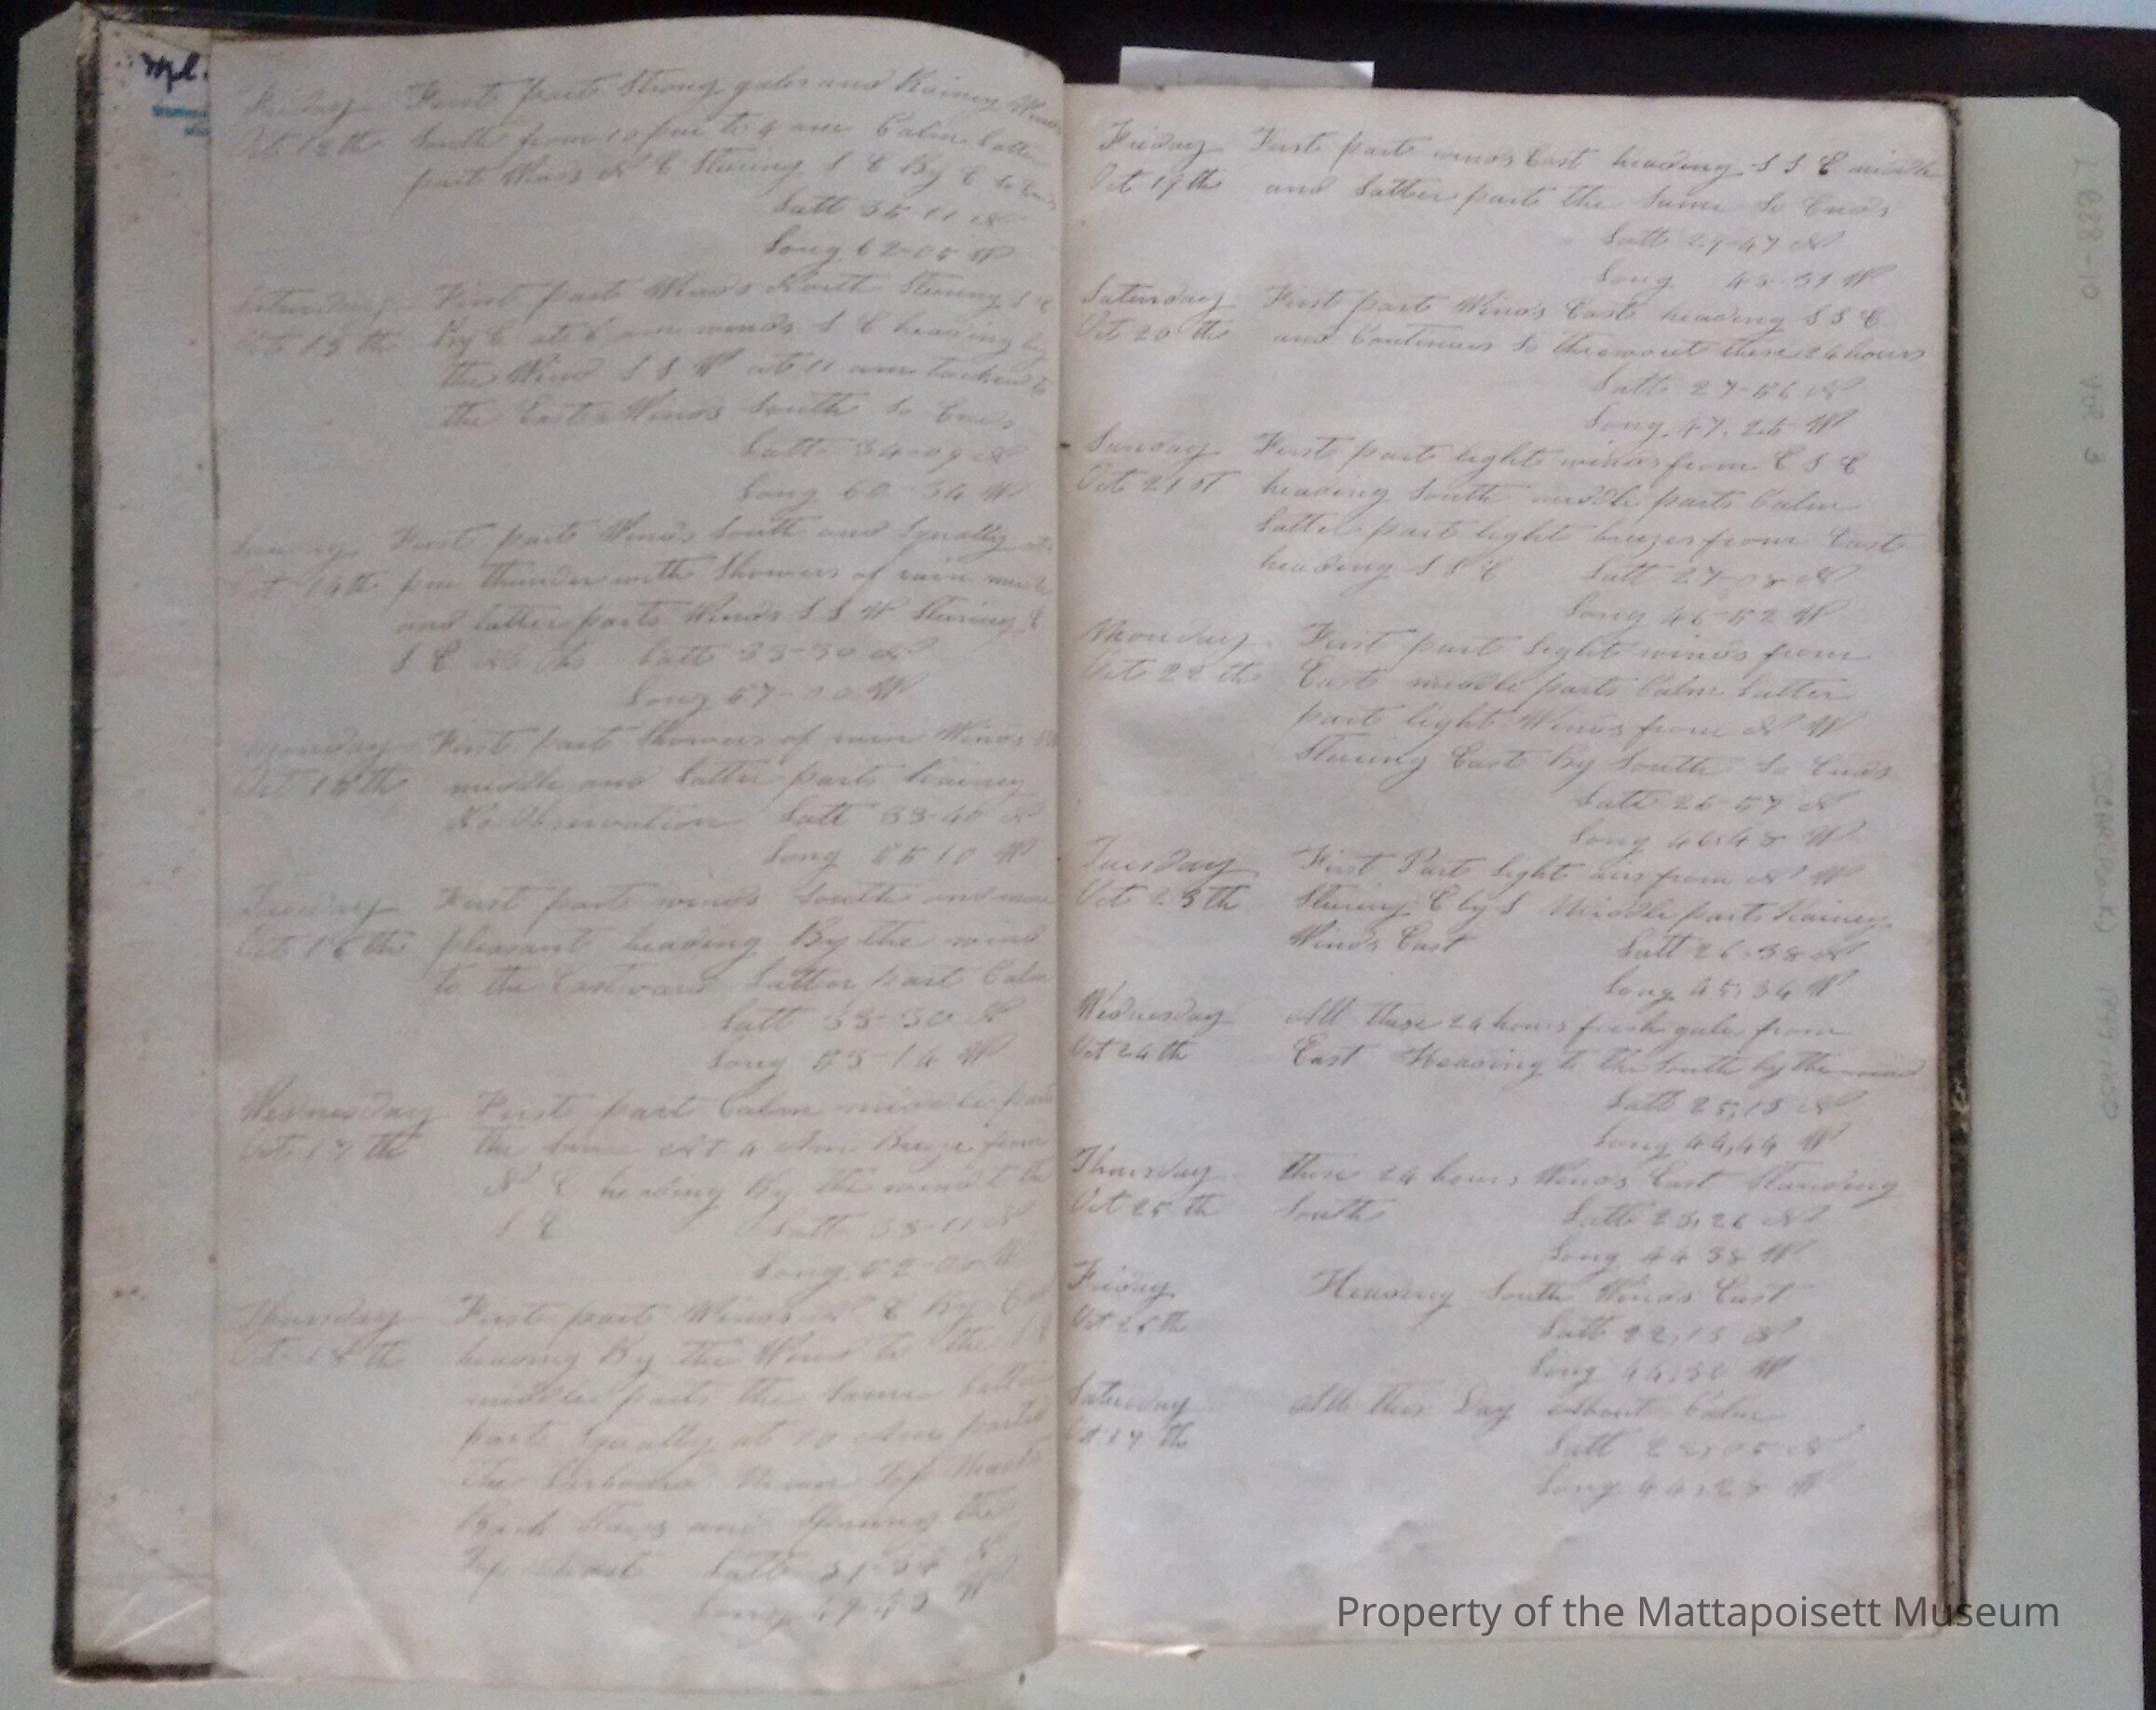 Friday First part Strong gales and Rainey Winds
Oct 12th South from 10 pm to 4 am Calm latter
part Winds N E Stering S E By E So Ends
Latt 35-11 N
Long 62-05 W
Saturday First part Winds North Stering S E
Oct 13th By E at 6 am winds S E heading by
the Wind S S W at 11 am tacked to
the Easter Winds South So Ends
Latt 34-09 N
Long 60-34 W
Sunday First part Winds South and Squally
Oct 14th pm thunder with Showers of rain
and latter parts Winds S S W Stering
S E Latt 33-50 N
Long 57-00 W
Monday First part Showers of rain Winds
Oct 15th middle and Latter parts Rainey
No Observation Latt 33-40 N
Long 55 10 W
Tuesday First part winds South and more
Oct 16th pleasant heading By the wind
to the Eastward Latter part Calm
Latt 33-30 N
Long 53-14 W
Wednesday First part Calm middle part
Oct 17th the Same At 4 Am Breeze from
N E heading By the wind to the
S E Latt 33-11 N
Long 52-00 W
Thursday First part Winds E By
Oct 18th heading By the Wind to the
middle parts the Same Latter
part Squally at 10 Am parted
the Larboard Main Top Mast
Back Stays and Sprung the
Top Mast Latt 31-54 N
Long 49-43 W
Friday First part winds East heading S S E middle
Oct 19th and Latter part the Same So Ends
Latt 29-47 N
Long 48-31 W
Saturday First part Winds East heading S S E
Oct 20th and Continues So threwout these 24 hours
Latt 27-56 N
Long 47.26 W
Sunday First part light winds from E S E
Oct 21st heading South middle parts Calm
Latter part light breezes from East
heading S S E Latt 27-08 N
Long 46-52 W
Monday First part Light winds from
Oct 22th East middle parts Calm Latter
part light Winds from N W
Stering East By South So Ends
Latt 26-57 N
Long 46.48 W
Tuesday First Part Light airs from N W
Oct 23th Stering E by S Middle parts Rainey
Winds East Latt 26-38 N
Long 45.34 W
Wednesday All these 24 hours fresh gales from
Oct 24th East Heading to the South by the wind
Latt 25,13 N
Long 44,44 W
Thursday these 24 hours Winds East Standing
Oct 25th South Latt 23,26 N
Long 44 38 W
Friday Heading South Winds East
Oct 26th Latt 22,13 N
Long 44,30 W
Saturday All this Day about Calm
Oct 27th Latt 22,05 N
Long 44,28 W
Property of the Mattapoisett Museum